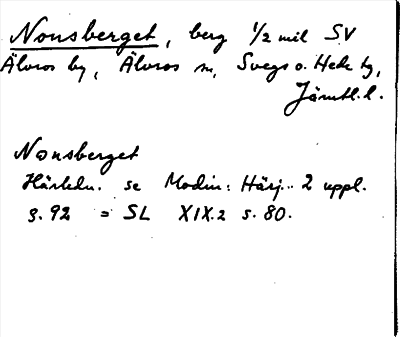 Nonsberget, berg 1/2 mil SV
Älvros by, Älvros sn, Svegs o. Hede tg,
Jämtl. l.
Nonsberget
Härledn. se Modin: Härj.. 2 uppl.
s. 92 = SL XIX.2 s. 80.